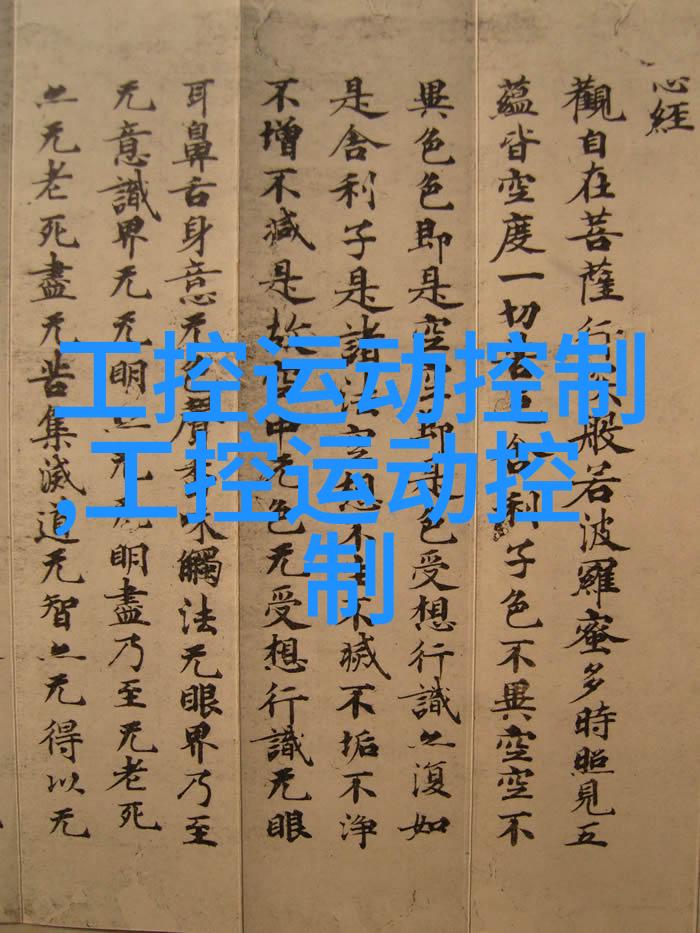 心經
觀自在菩薩行深般若波羅蜜多時照見五
蘊皆空度一切苦厄舍利子色不異空空不
異色色即是空空即是色受想行識亦復如
是舍利子是諸法空想不生不滅不垢不淨
不增不減是故空中无色无受想行識无眼
耳鼻舌身意无色聲香味觸法无眼界乃至
无意識界无无明亦无无明盡乃至无老死
亦无老死盡无苦集滅道无智亦无得以无
工控运动控制
,工控运动控
制